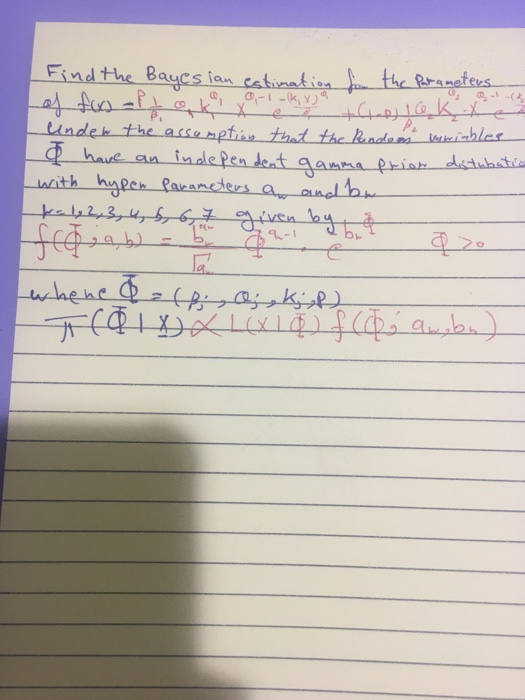 Find the Bayesian estimation for the Parameters
of f(x) = P 1/β₁ θ₁ k₁^θ₁ x^θ₁-1 e^-(k₁x)^θ₁/β₁ + (1-P) 1/β₂ θ₂ k₂^θ₂ x^θ₂-1 e^-(k₂
under the assumption that the Random variables
Φ have an independent gamma prior distnbatio
with hypen Parameters aₙ and bₙ
r=1,2,3,4,5,6,7 given by
f(Φ;a,b) = bₙ^aₙ / Γaₙ Φ^a-1 . e^bₙΦ Φ>0
whene Φ = (βj, θj, kj, P)
π(Φ|X) ∝ L(X|Φ) f(Φ; aₙ,bₙ)